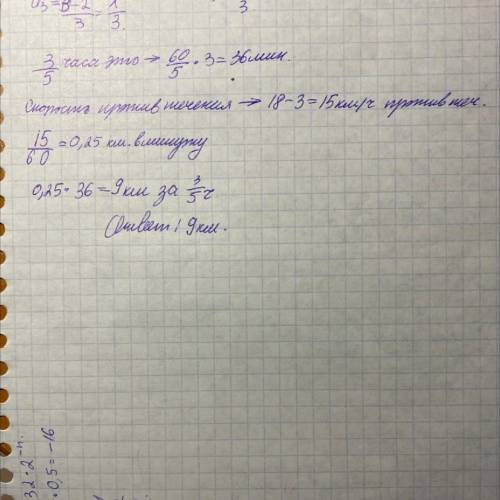 a₃ = 3-2/3 = 1/3. 3
3/5 часа это → 60/5 · 3 = 36 мин.
Скорость против течения → 18-3=15 км/ч против теч.
15/60 = 0,25 км. в минуту
0,25 · 36 = 9 км за 3/5 ч
Ответ: 9 км.
32 · 2⁻ⁿ.
· 0,5 = -16